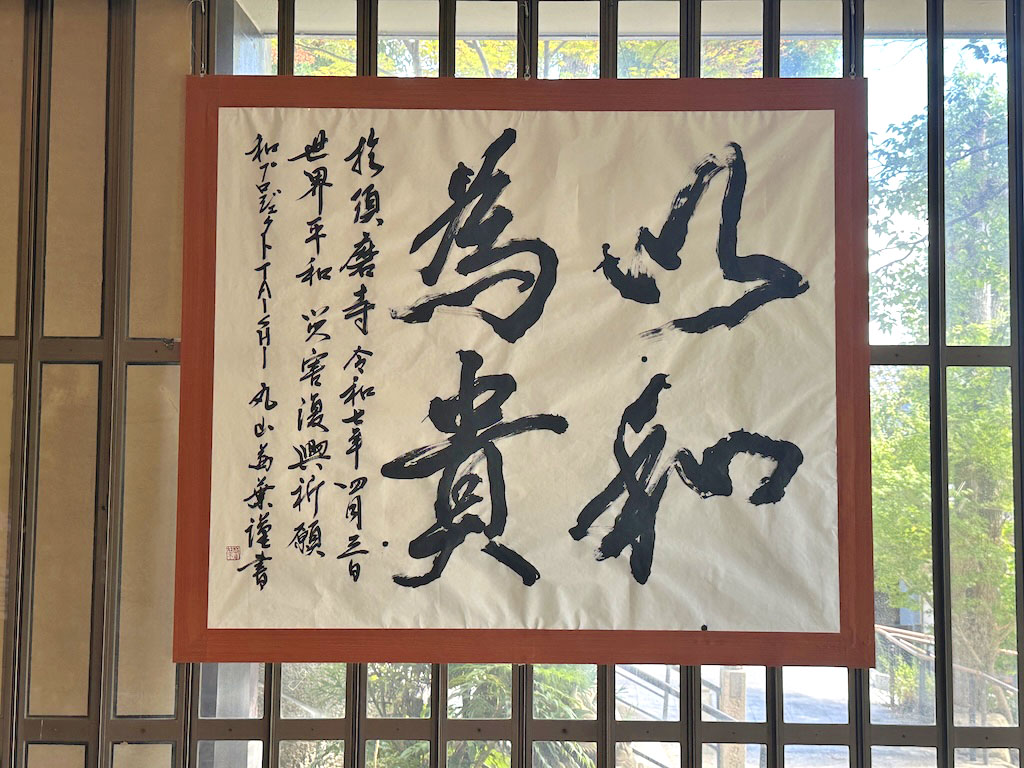 以和
為貴
於須磨寺 令和七年 四月三日
世界平和 災害復興祈願
和プロジェクトTAISHI 丸山万葉謹書